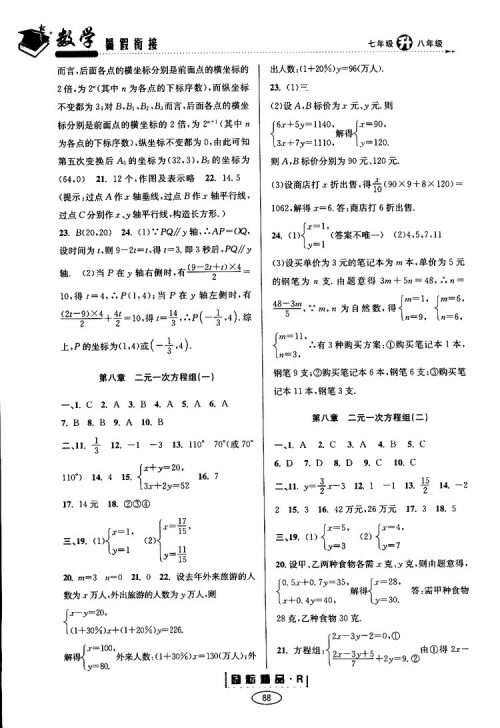 数学 暑假衔接
七年级 升 八年级
而言,后面各点的横坐标分别是前面点的横坐标的
2倍,为2ⁿ(其中n为各点的下标序数),而纵坐标
不变都为3;对B、B₁、B₂、B₃而言,后面各点的横坐
标分别是前面点的横坐标的2倍,为2ⁿ⁺¹(其中n
为各点的下标序数),纵坐标不变都为0,由此可知
第五次变换后A₅的坐标为(32,3),B₅的坐标为
(64,0) 21. 12个,作图及表示略 22. 14.5
(提示:过点A作x轴垂线,过点B作x轴平行线,
过点C分别作x、y轴平行线,构造长方形.)
23. B(20,20) 24. (1)∵PQ∥y轴,∴AP=OQ,
设时间为t,则9-2t=t,得t=3.即3秒后,PQ∥y
轴. (2)当P在y轴右侧时,有(9-2t+t)×4/2=
10,得t=4,∴P(1,4);当P在y轴左侧时,有
(2t-9)×4/2+4t/2=10,得t=14/3,∴P(-1/3,4).综
上,P的坐标为(1,4)或(-1/3,4).
第八章 二元一次方程组(一)
一、1. C 2. A 3. B 4. A 5. A 6. A
7. B 8. B 9. A 10. B
二、11. 1/3 12. -1 -3 13. 110° 70°(或70°
110°) 14. 4 15. {x+y=20, 3x+2y=52 16. 7
17. 14元 18. ②③④
三、19. (1){x=1, y=1 (2){x=17/15, y=11/15
20. m=3 n=0 21. 0 22. 设去年外来旅游的人
数为x万人,外出旅游的人数为y万人,则
{x-y=20,
(1+30%)x+(1+20%)y=226.
解得{x=100, y=80. 外来人数:(1+30%)x=130(万人);外
出人数:(1+20%)y=96(万人).
23. (1)三
(2)设A、B标价为x元、y元.则
{6x+5y=1140, 3x+7y=1110, 解得{x=90, y=120.
则A、B标价分别为90元、120元.
(3)设商店打x折出售,得x/10(90×9+8×120)=
1062,解得x=6.答:商店打6折出售.
24. (1){x=1, y=1 (答案不唯一) (2)4,5,7,11
(3)设买单价为3元的笔记本为m本,单价为5元
的钢笔为n支.由题意得3m+5n=48,∴n=
48-3m/5,∵m,n为自然数,得{m=1, n=9, {m=6, n=6,
{m=11, n=3, ∴有3种购买方案:①购买笔记本1本,
钢笔9支;②购买笔记本6本,钢笔6支;③购买笔
记本11本,钢笔3支.
第八章 二元一次方程组(二)
一、1. A 2. C 3. A 4. B 5. C
6. D 7. D 8. D 9. C 10. C
二、11. y=3/2x-3 12. 1 -1 13. 15/2 14. -2
2 15. 3 16. 42万元,26万元 17. 3 18. 5
三、19. (1){x=5, y=3 (2){x=4, y=7
20. 设甲、乙两种食物各需x克、y克,则由题意得,
{0.5x+0.7y=35, x+0.4y=40, 解得{x=28, y=30. 答:需甲种食物
28克,乙种食物30克.
21. 方程组:{2x-3y-2=0,① 2x-3y+5/7+2y=9.② 由①得2x-
精品·R
88